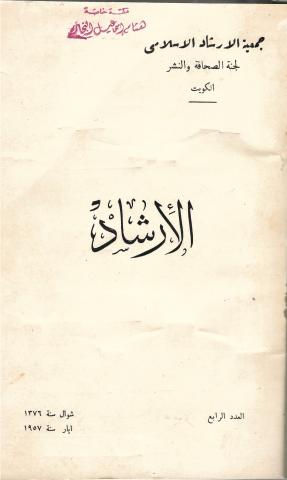 مكتبة خاصة
جمعية الارشاد الاسلامى
لجنة الصحافة والنشر
الكويت
الأرشاد
العدد الرابع
شوال سنة ١٣٧٦
ايار سنة ١٩٥٧